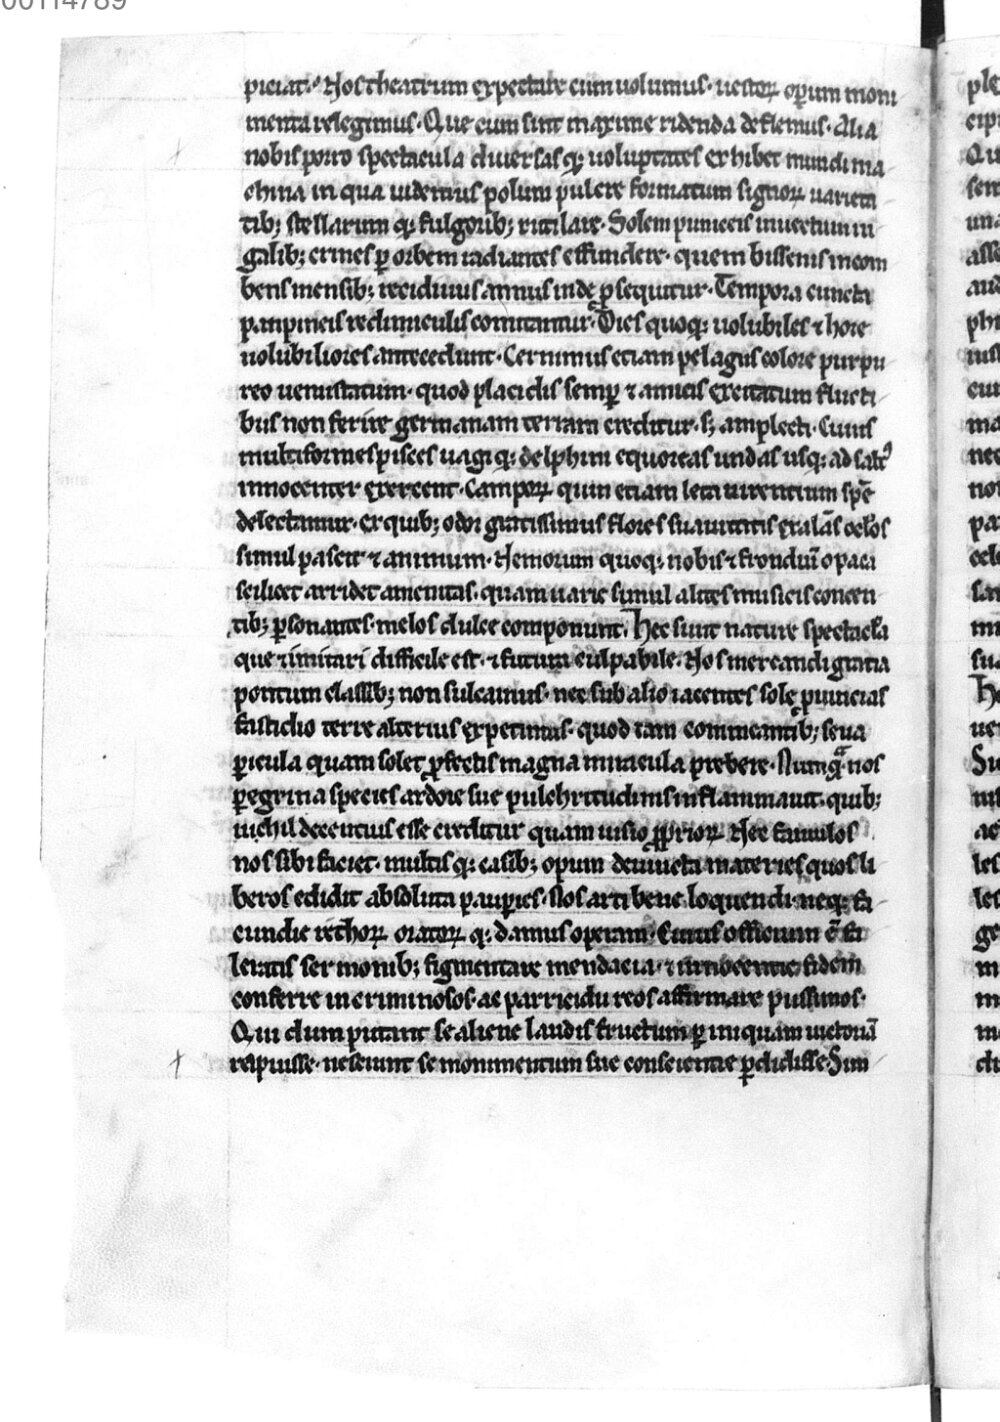 00114789
piciat. Nos theatrum expectare cum uolumus. uestroꝝ opum moni
menta relegimus. Que cum sint maxime ridenda deflemus. Alia
nobis porro spectacula diuersas qꝫ uoluptates exhibet mundi ma
china in qua uidemus polum pulcre formatum signoꝝ uarieta
tibꝫ stellarum qꝫ fulgoribꝫ rutilare. Solem puniceis inuectum iu
galibꝫ crines ꝑ orbem radiantes effundere. quem bissenis incom
bens mensibꝫ recidiuus annus inde ꝑsequitur. Tempora cuncta
panpineis redimiculis comitantur. Dies quoqꝫ uolubiles ⁊ hore
uolubiliores antecedunt. Cernimus etiam pelagus colore purpu
reo uenustatum. quod placidis semꝑ ⁊ amicis excitatum flucti
bus non ferire germanam terram creditur. sꝫ amplecti. Cuius
multiformes pisces uagi qꝫ delphini equoreas undas usqꝫ ad satꝰ
innocenter exercent. Campoꝝ quin etiam leta uirentium spē
delectamur. ex quibꝫ odori gratissimus flores suauitatis exalās oclos
simul pascit ⁊ animum. Nemorum quoqꝫ nobis ⁊ frondiuī opaca
scilicet arridet amenitas. quam uarie simul alites musicis concen
tibꝫ ꝑsonantes. melos dulce componunt. Hec sunt nature spectacła
que ⁊ imitari difficile est. ⁊ futura culpabile. Nos mercandi gratia
pontum classibꝫ non sulcamus. nec sub alio iacentes sole ꝓuincias
fastidio terre alterius expetimus. quod tam commeantibꝫ seua
ꝑicula quam solet ꝓfectis magna miracula prebere. Nunqᵃ nos
ꝑegrina species ardore sue pulchritudinis inflammauit. quibꝫ
nichil decentius esse creditur quam uisio ꝓprioꝝ. Nec famulos
nos sibi faciet. multis qꝫ casibꝫ opum deuincta materies quos li
beros edidit absoluta pauꝑies. Nos arti bene loquendi. neqꝫ fa
cundie rethoꝝ oratoꝝ qꝫ damus operam. Cuius officium ē fa
leratis sermonibꝫ figmentare mendacia. ⁊ innocentie fidem
conferre in criminosos. ac parricidii reos affirmare piissimos.
Qui dum putant se aliene laudis fructum ꝑ iniquam uictoriā
rapuisse. nesciunt se monimentum sue conscientie ꝑdidisse. Sim